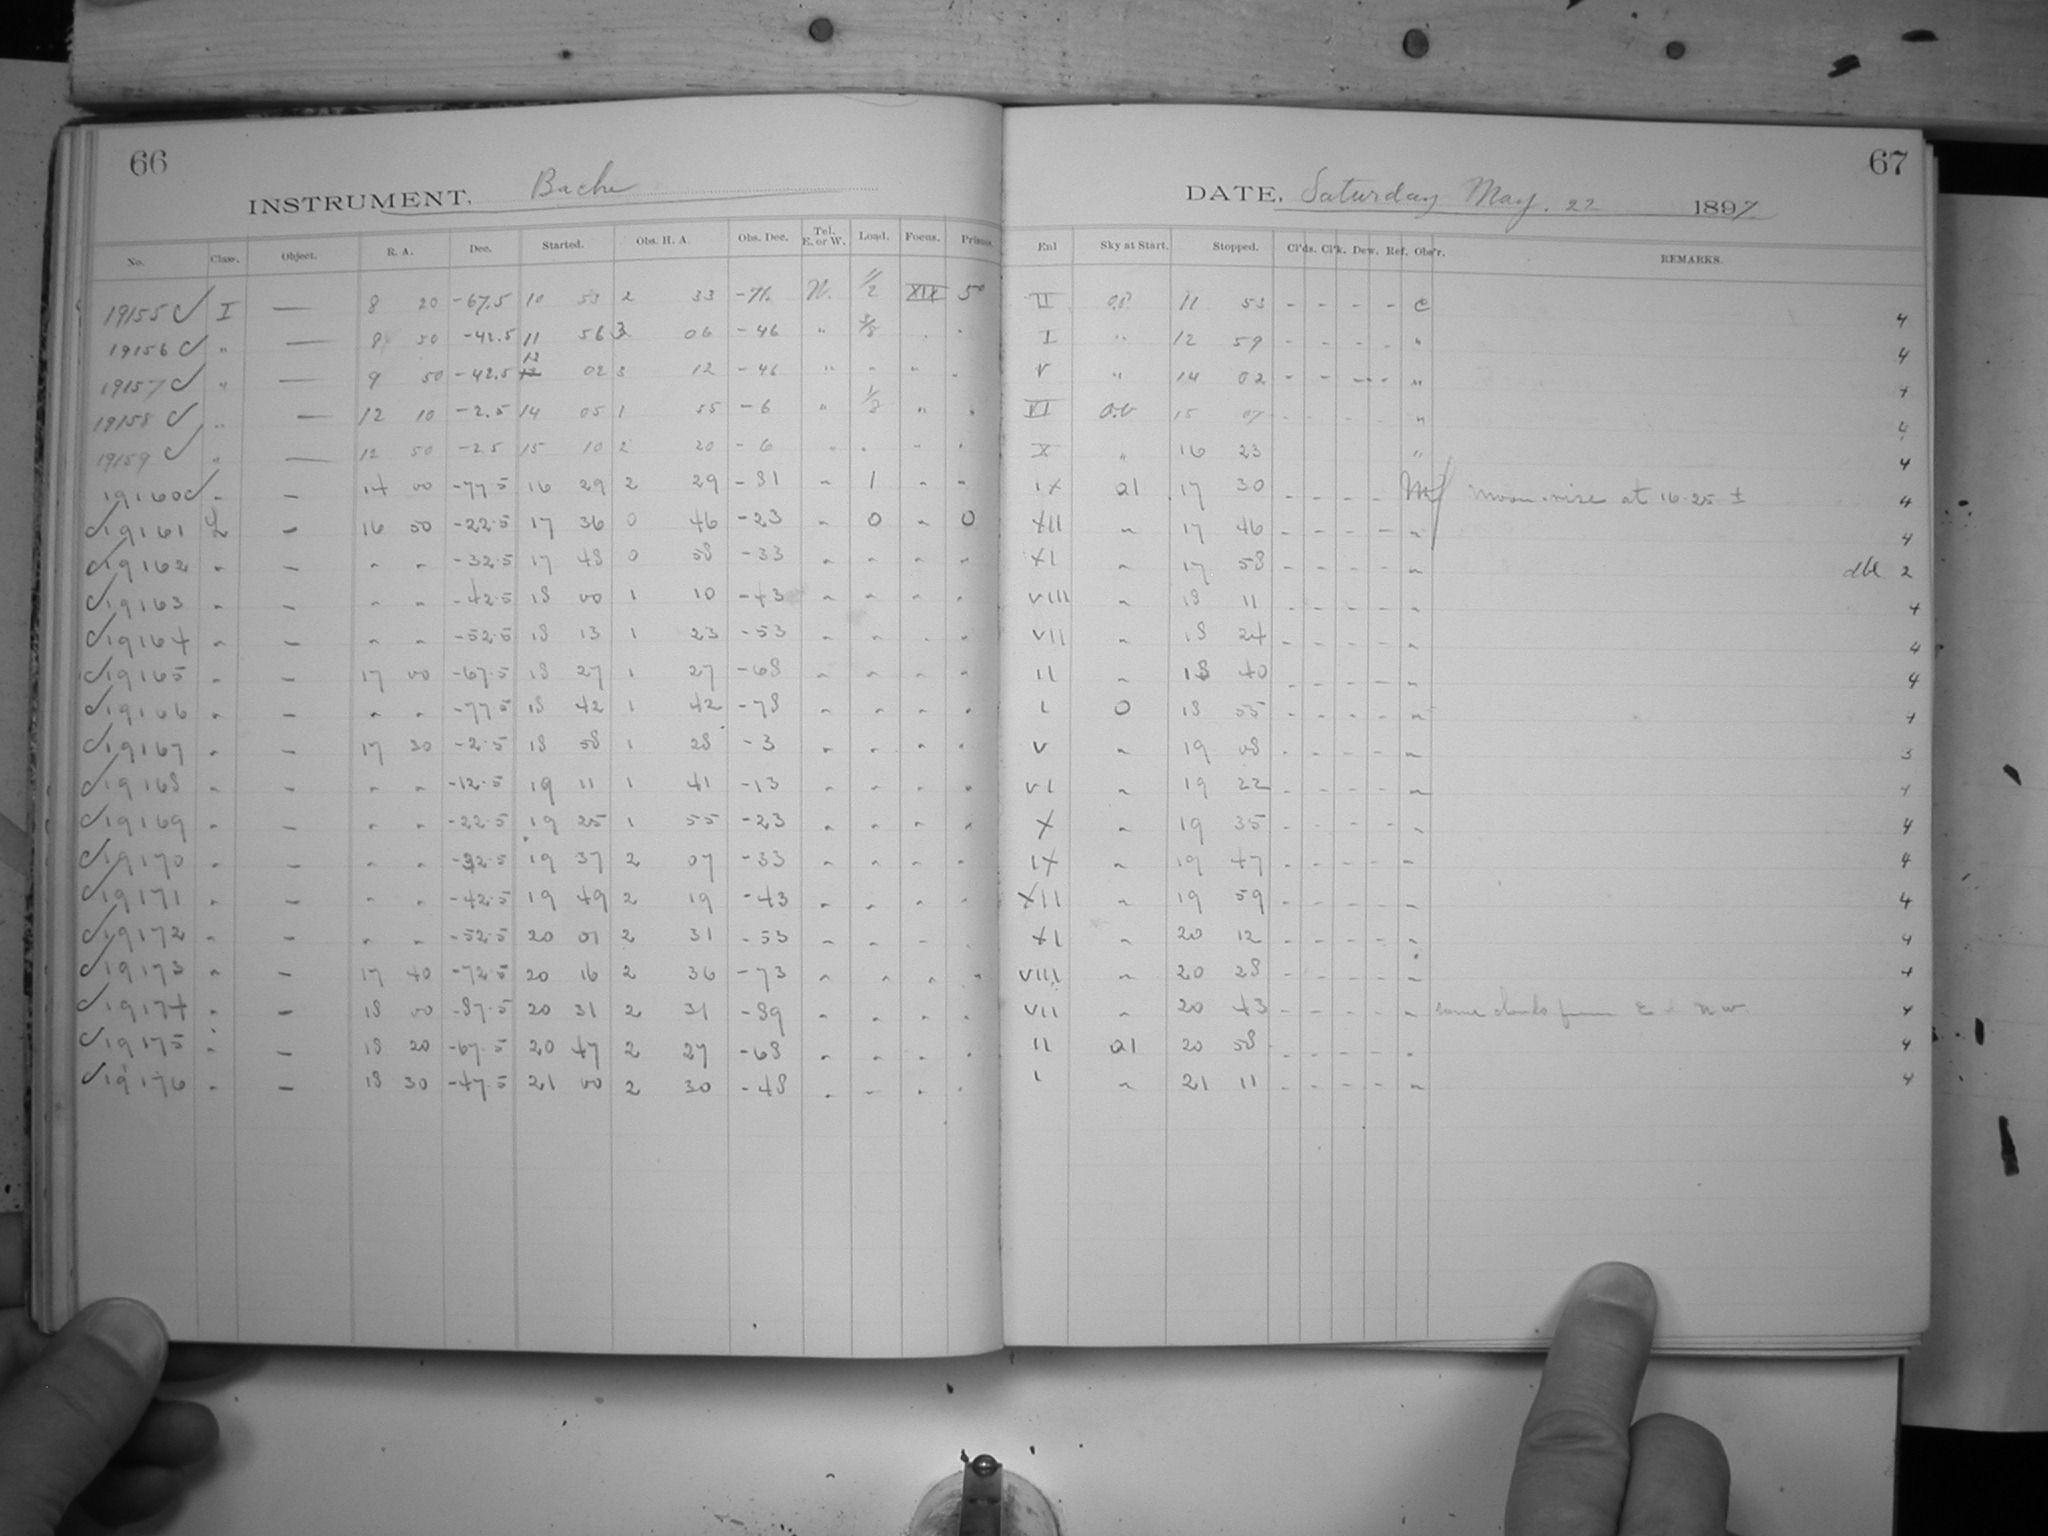 66
INSTRUMENT, Bache
No. Class. Object. R. A. Dec. Started. Obs. H. A. Obs. Dec. Tel. E. or W. Load. Focus. Prisms.
19155 I — 8 20 -67.5 10 53 2 33 -71 W. 1/2 XIX 5°
19156 " — 8 50 -42.5 11 56 3 06 -46 " 3/8
19157 " — 9 50 -42.5 12 02 3 12 -46 " " " "
19158 " — 12 10 -2.5 14 05 1 55 -6 " 1/8 " "
19159 " — 12 50 -2.5 15 10 2 20 -6 " " " "
19160 " — 14 00 -77.5 16 29 2 29 -81 " 1 " "
19161 — 16 50 -22.5 17 36 0 46 -23 " 0 " 0
19162 " — " " -32.5 17 48 0 58 -33 " " " "
19163 " — " " -42.5 18 00 1 10 -43 " " " "
19164 " — " " -52.5 18 13 1 23 -53 " " " "
19165 " — 17 00 -67.5 18 27 1 27 -68 " " " "
19166 " — " " -77.5 18 42 1 42 -78 " " " "
19167 " — 17 30 -2.5 18 58 1 28 -3 " " " "
19168 " — " " -12.5 19 11 1 41 -13 " " " "
19169 " — " " -22.5 19 25 1 55 -23 " " " "
19170 " — " " -32.5 19 37 2 07 -33 " " " "
19171 " — " " -42.5 19 49 2 19 -43 " " " "
19172 " — " " -52.5 20 01 2 31 -53 " " " "
19173 " — 17 40 -72.5 20 16 2 36 -73 " " " "
19174 " — 18 00 -87.5 20 31 2 31 -89 " " " "
19175 " — 18 20 -67.5 20 47 2 27 -68 " " " "
19176 " — 18 30 -47.5 21 00 2 30 -48 " " " "
67
DATE, Saturday May. 22 1897
Enl Sky at Start. Stopped. Cl'ds. Cl'k. Dew. Ref. Obs'r. REMARKS.
II 11 53 - - - - C 4
I " 12 59 - - - - " 4
V " 14 02 - - - - " 4
VI 15 07 - - - " 4
X " 16 23 " 4
IX a1 17 30 M Moon-rise at 16.25 ± 4
XII " 17 46 - - - - " 4
XI " 17 58 - - - - " dbl 2
VIII " 18 11 - - - - " 4
VII " 18 24 - - - - " 4
II " 18 40 - - - - " 4
I 0 18 55 - - - - " 4
V " 19 08 - - - - " 3
VI " 19 22 - - - - " 4
X " 19 35 - - - - " 4
IX " 19 47 - - - - " 4
XII " 19 59 - - - - " 4
XI " 20 12 - - - - " 4
VIII " 20 28 - - - - " 4
VII " 20 43 - - - - " some clouds from E & NW 4
II a1 20 58 - - - - " 4
I " 21 11 - - - - " 4